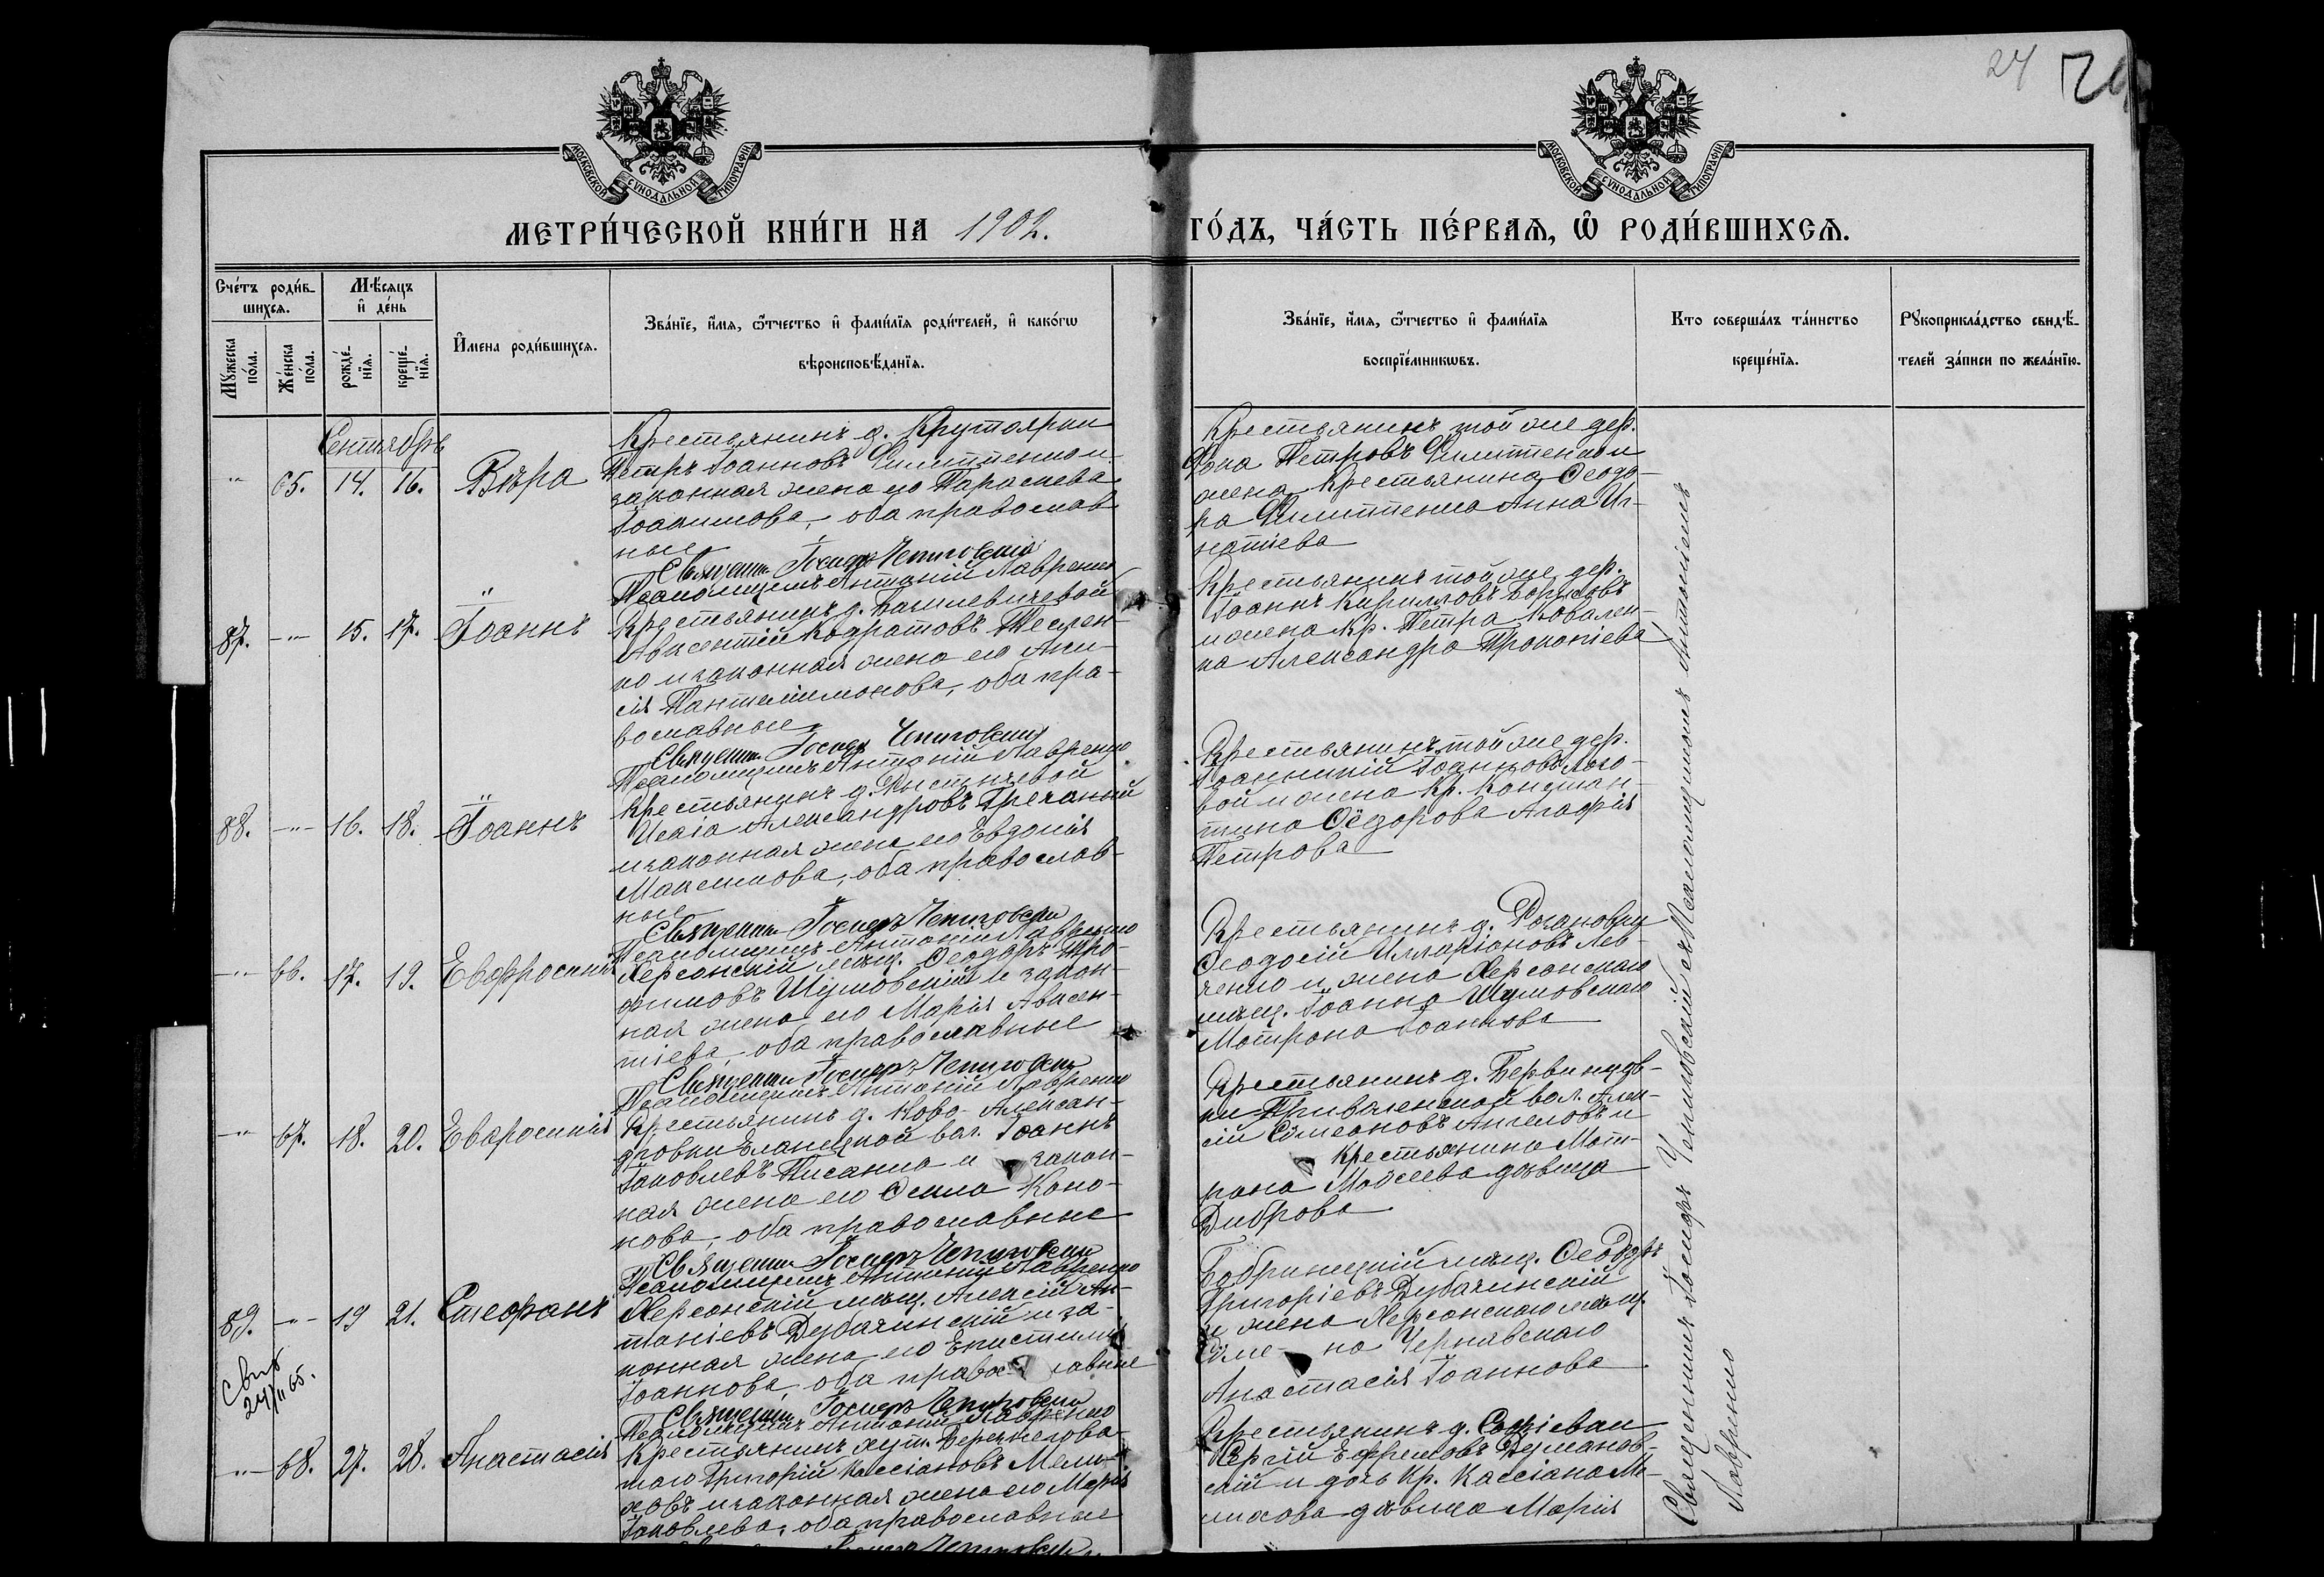 24
МОСКОВСКОЙ СУНОДАЛЬНОЙ ТИПОГРАФІИ
МОСКОВСКОЙ СУНОДАЛЬНОЙ ТИПОГРАФІИ
МЕТРИ́ЧЕСКОЙ КНИ́ГИ НА 1902.
ГО́ДЪ, ЧА́СТЬ ПЕ́РВАѦ, Ѡ҆ РОДИ́ВШИХСѦ.
Сче́тъ роди́в-
шихсѧ.
Мꙋ́жеска по́ла.
Же́нска по́ла.
Мѣ́сѧцъ
и҆ де́нь
рожде́-
нїѧ.
креще́-
нїѧ.
И҆мена роди́вшихсѧ.
Зва́нїе, и҆́мѧ, ѻ҆́тчество и҆ фами́лїѧ роди́телей, и҆ како́гѡ
вѣроисповѣ́данїѧ.
Зва́нїе, и҆́мѧ, ѻ҆́тчество и҆ фами́лїѧ
воспрїе́мникѡвъ.
Кто соверша́лъ та́инство
креще́нїѧ.
Рꙋкоприкла́дство свидѣ́-
телей за́писи по жела́нїю.
Сентябрь
65. 14. 16. Вѣра
Крестьянинъ д. Крутоярки
Петръ Іоанновъ
законная жена его Параскева
Іоакимова, оба православ-
ные
Священн. Іосифъ Чепиговскій
Псаломщикъ Антоній Лавренко
Крестьянинъ той же дер.
Ѳока Петровъ
жена крестьянина Ѳеодо-
ра Анна Иг-
натіева
87. 15. 17. Іоаннъ
Крестьянинъ д.
Авксентій Кодратовъ Теслен-
ко и законная жена его Ани-
сія Пантелеимонова, оба пра-
вославные
Священн. Іосифъ Чепиговскій
Псаломщикъ Антоній Лавренко
Крестьянинъ той же дер.
Іоаннъ Кирилловъ Борисовъ
и жена кр. Петра Ковален-
ка Александра Прокопіева
88. 16. 18. Іоаннъ
Крестьянинъ д.
Исаія Александровъ Гречаный
и законная жена его Евдокія
Максимова, оба православ-
ные
Священн. Іосифъ Чепиговскій
Псаломщикъ Антоній Лавренко
Крестьянинъ той же дер.
Іоанникій Іоанновъ Лозо-
вой и жена кр. Констан-
тина Ѳедорова Агафія
Петрова
66. 17. 19. Евфросинія
Херсонскій мѣщ. Ѳеодоръ Тро-
фимовъ Шумовскій и закон-
ная жена его Марія Авксен-
тіева, оба православные
Священн. Іосифъ Чепиговскій
Псаломщикъ Антоній Лавренко
Крестьянинъ д.
Ѳеодосій Илларіоновъ Лев-
ченко и жена Херсонскаго
мѣщ. Іоанна Шумовскаго
Матрона Іоаннова
67. 18. 20. Евфросинія
Крестьянинъ д. Ново-Алексан-
дровки Еланецкой вол. Іоаннъ
Іаковлевъ Писанко и закон-
ная жена его Ѳекла Коно-
нова, оба православные
Священн. Іосифъ Чепиговскій
Псаломщикъ Антоній Лавренко
Крестьянинъ д.
Приволенской вол. Алек-
сій Симеоновъ Ангеловъ и
крестьянина Мат-
рона Моѵсеева дѣвица
Диброва
89. 19 21. Стефанъ
Херсонскій мѣщ. Алексій Ан-
тоніевъ Дубачинскій и за-
конная жена его Епистимія
Іоаннова, оба православные
Священн. Іосифъ Чепиговскій
Псаломщикъ Антоній Лавренко
Бобринецкій мѣщ. Ѳеодоръ
Григоріевъ Дубачинскій
и жена Херсонскаго мѣщ.
Симе- на Чернявскаго
Анастасія Іоаннова
68. 27. 28. Анастасія
Крестьянинъ хут.
Григорій Кассіановъ
и законная жена его Марія
Іаковлева, оба православные
Крестьянинъ д. Софіевки
Сергій Ефремовъ Думанов-
скій и дочь кр. Кассіана
дѣвица Марія
Священникъ Іосифъ Чепиговскій съ Псаломщикомъ Антоніемъ
Лавренко